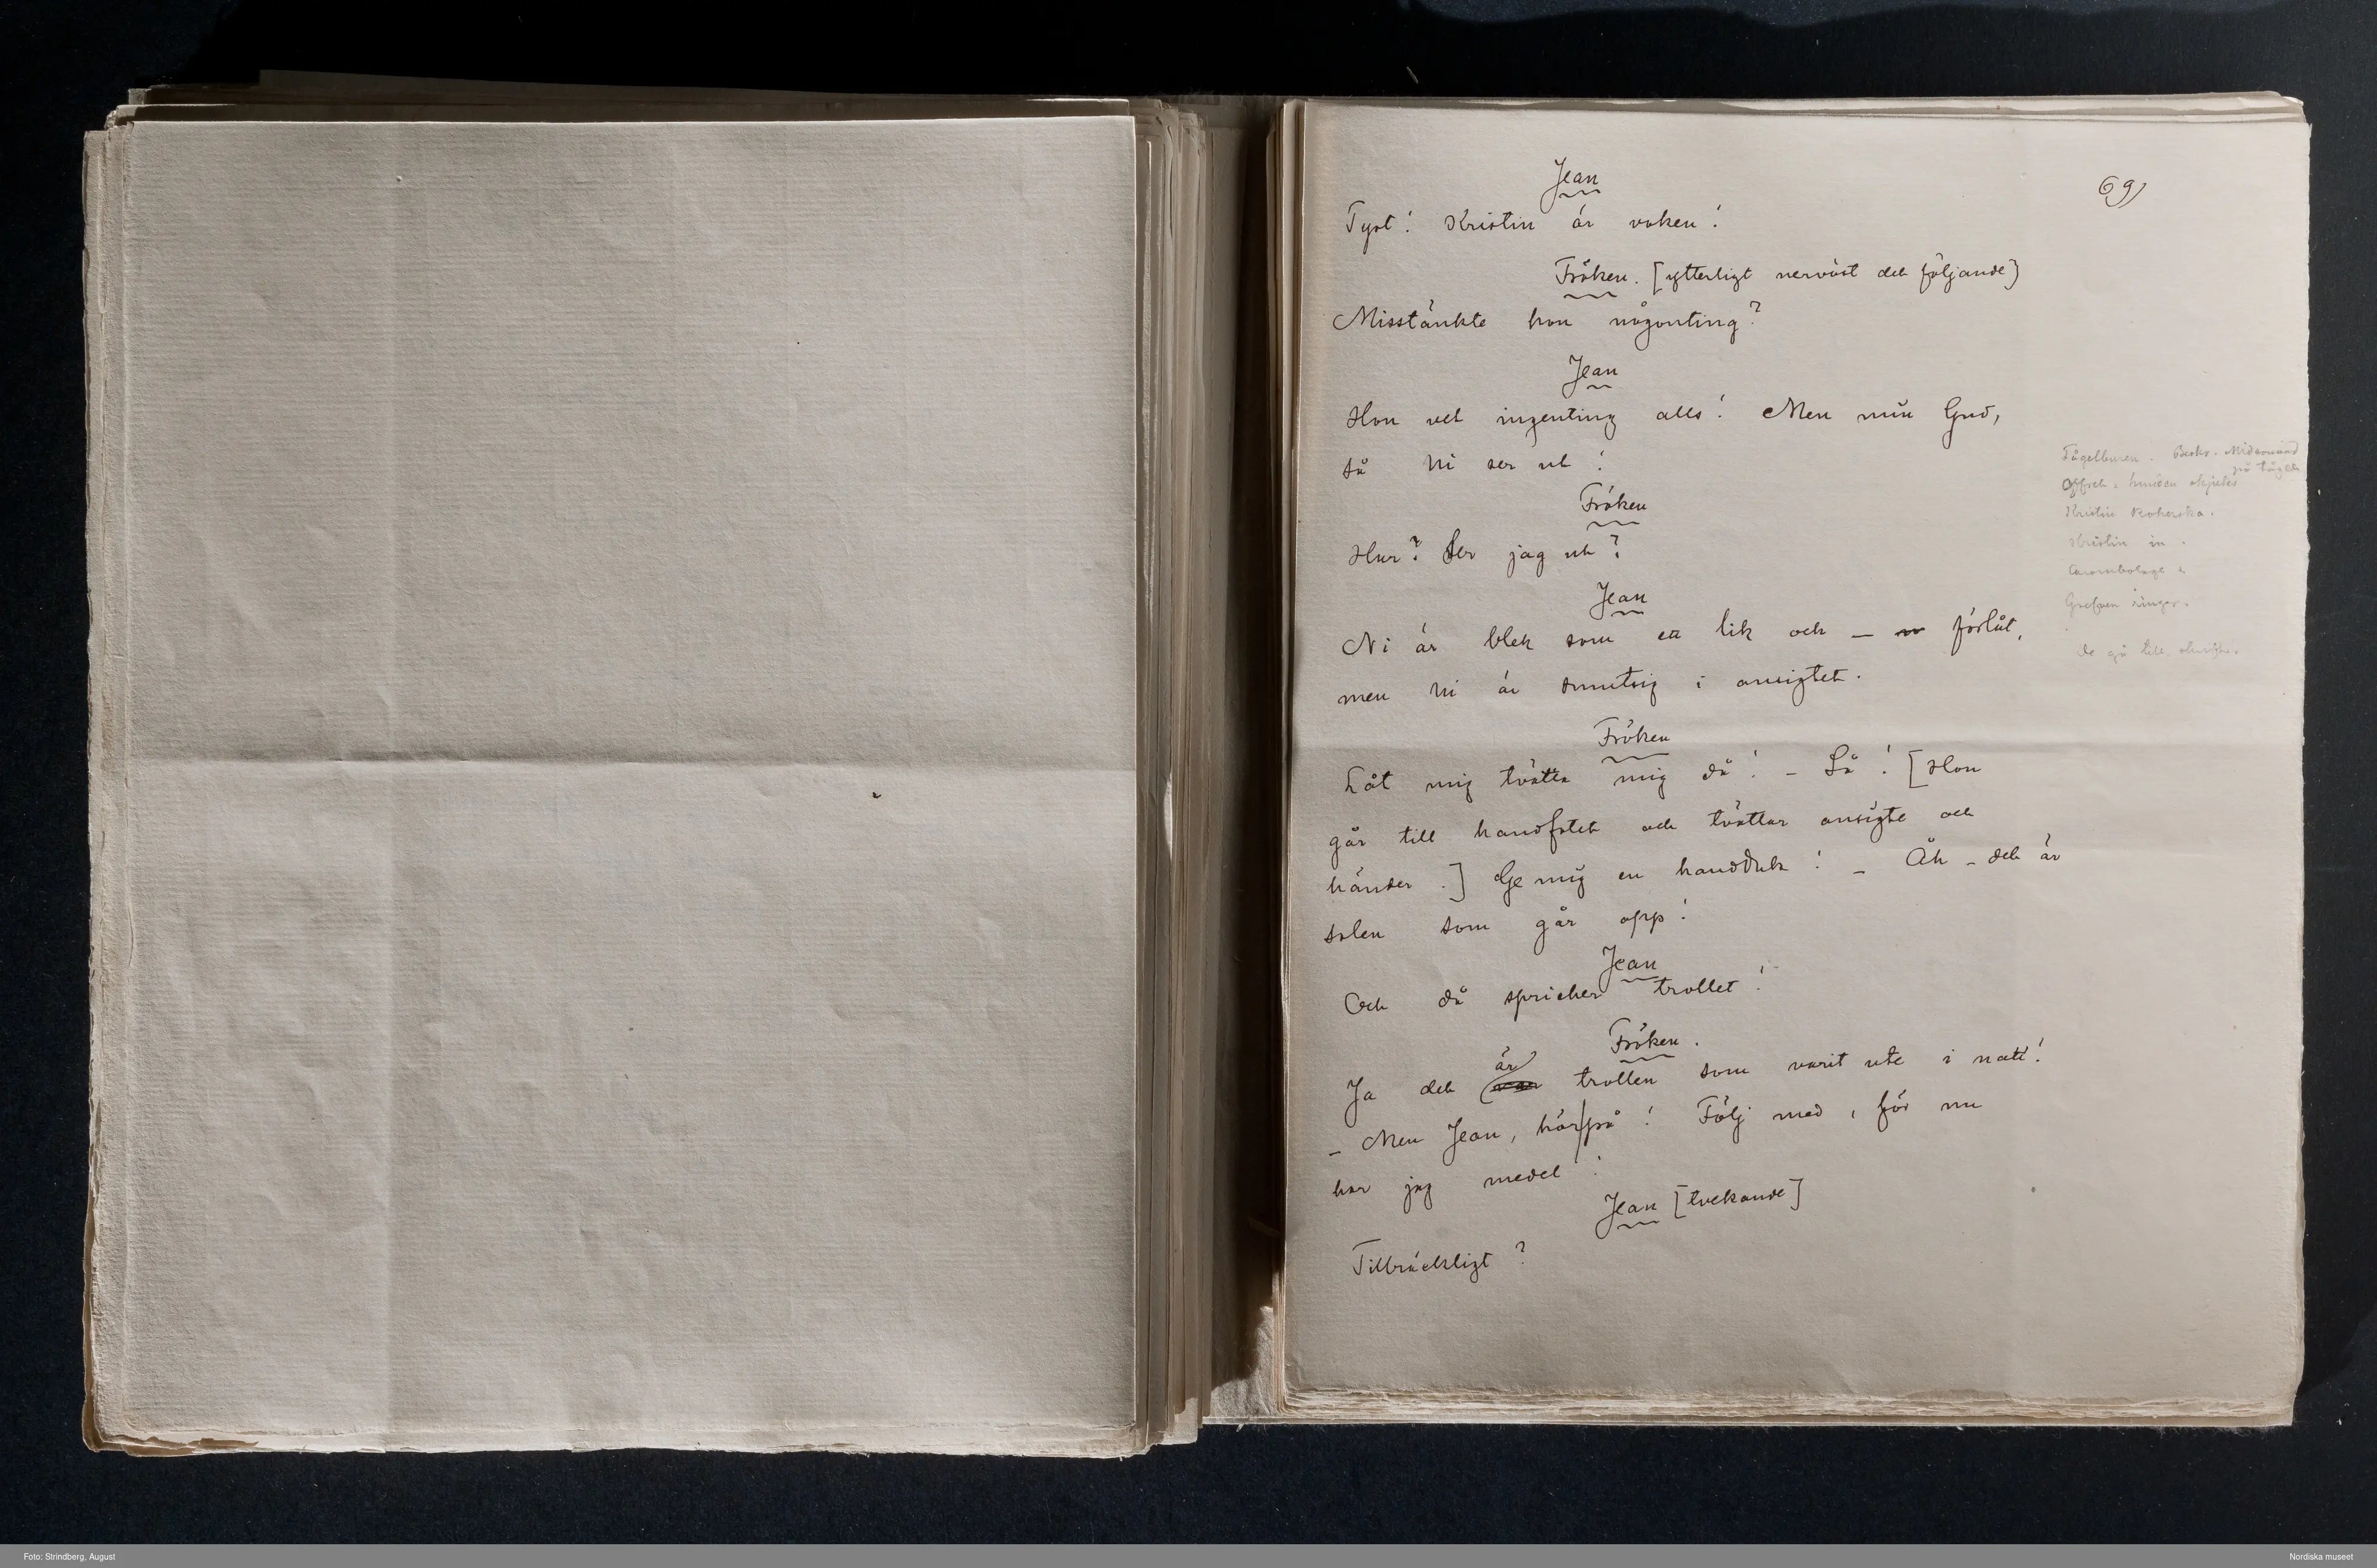 69)
Jean
Tyst! Kristin är vaken!
Fröken. [ytterligt nervöst det följande]
Misstänkte hon någonting?
Jean
Hon vet ingenting alls! Men min Gud,
så Ni ser ut!
Fröken
Hur? Ser jag ut?
Jean
Ni är blek som ett lik och — förlåt,
men Ni är smutsig i ansigtet.
Fröken
Låt mig tvätta mig då! – Så! [Hon
går till handfatet och tvättar ansigte och
händer.] Ge mig en handduk! – Åh – det är
solen som går opp!
Jean
Och då spricker trollet!
Fröken.
Ja det är trollen som varit ute i natt!
– Men Jean, hör på! Följ med, för nu
har jag medel!
Jean [tvekande]
Tillräckligt?
Fågelburen. Midsommard
på tåget
Offret.
Kristin Kokerska.
Kristin in.
Grefven ringer.
de gå till
Foto: Strindberg, August
Nordiska museet